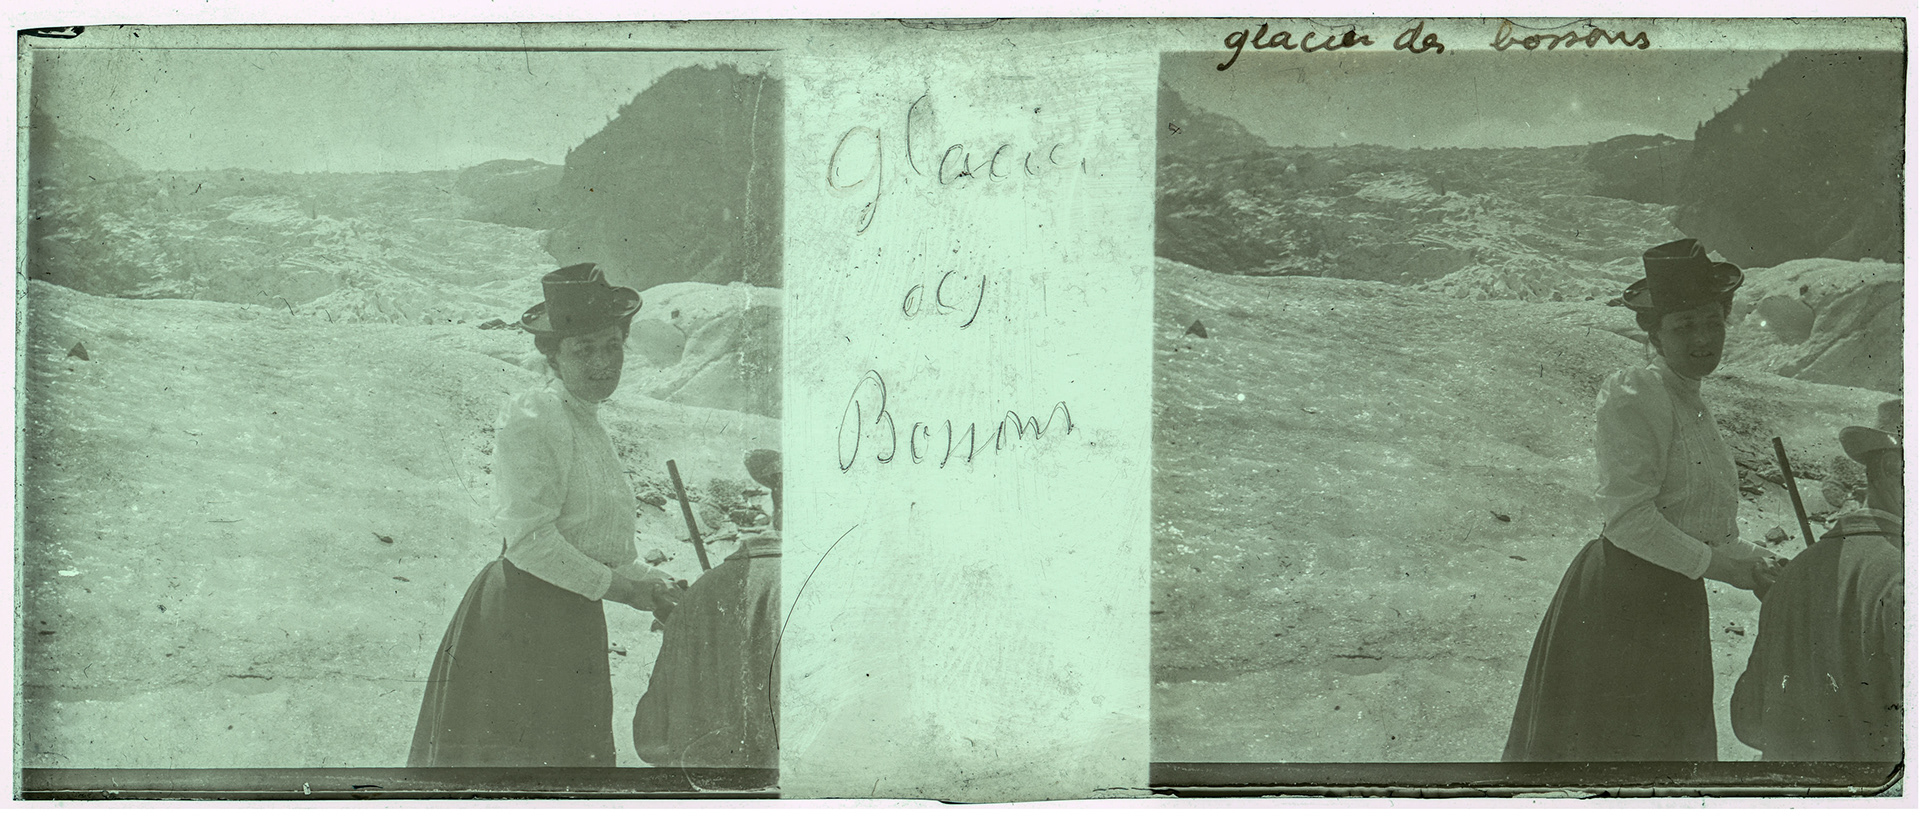 glacier des bossons
Glacier
des
Bossons